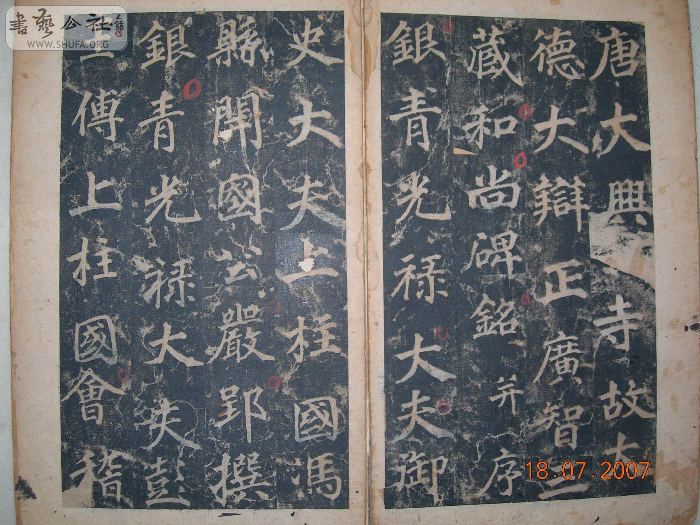 唐大興寺故大
德大辯正廣智三
藏和尚碑銘并序
銀青光禄大夫御
史大夫上柱國馮
縣開國公嚴郢撰
銀青光禄大夫彭
王傅上柱國會稽
18.07.2007
書藝公社
WWW.SHUFA.ORG